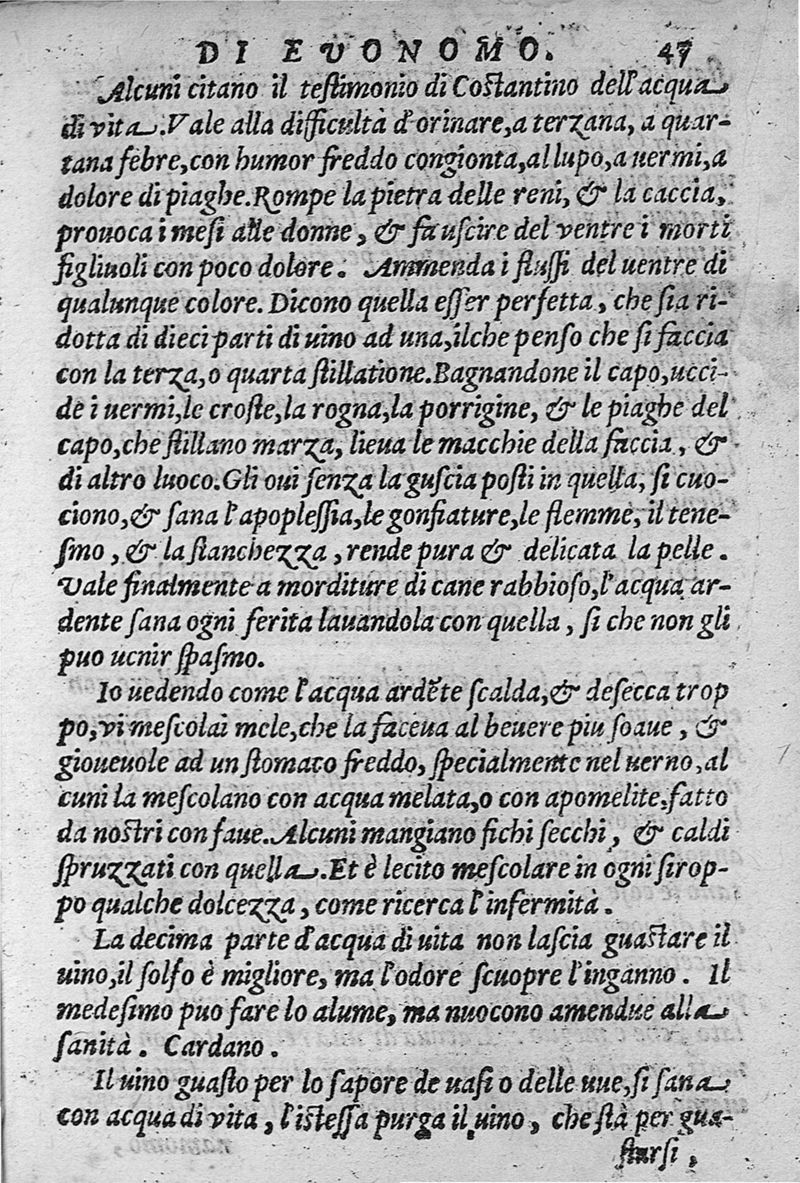 DI EVONOMO. 47
Alcuni citano il teſtimonio di Coſtantino dell'acqua
di vita. Vale alla difficultà d'orinare, a terzana, a quar-
tana febre, con humor freddo congionta, al lupo, a uermi, a
dolore di piaghe. Rompe la pietra delle reni, & la caccia,
prouoca i meſi alle donne, & fa uſcire del ventre i morti
figliuoli con poco dolore. Ammenda i fluſſi del uentre di
qualunque colore. Dicono quella eſſer perfetta, che ſia ri-
dotta di dieci parti di uino ad una, ilche penſo che ſi faccia
con la terza, o quarta ſtillatione. Bagnandone il capo, ucci-
de i uermi, le croſte, la rogna, la porrigine, & le piaghe del
capo, che ſtillano marza, lieua le macchie della faccia, &
di altro luoco. Gli oui ſenza la guſcia poſti in quella, ſi cuo-
ciono, & ſana l'apopleſſia, le gonfiature, le flemme, il tene-
ſmo, & la ſtanchezza, rende pura & delicata la pelle.
Vale finalmente a morditure di cane rabbioſo, l'acqua ar-
dente ſana ogni ferita lauandola con quella, ſi che non gli
puo uenir ſpaſmo.
Io uedendo come l'acqua ardẽte ſcalda, & deſecca trop
po, vi meſcolai mele, che la faceua al beuere piu ſoaue, &
gioueuole ad un ſtomaco freddo, ſpecialmente nel uerno, al
cuni la meſcolano con acqua melata, o con apomelite, fatto
da noſtri con faue. Alcuni mangiano fichi ſecchi, & caldi
ſpruzzati con quella. Et è lecito meſcolare in ogni ſirop-
po qualche dolcezza, come ricerca l'infermità.
La decima parte d'acqua di uita non laſcia guaſtare il
uino, il ſolfo è migliore, ma l'odore ſcuopre l'inganno. Il
medeſimo puo fare lo alume, ma nuocono amendue alla
ſanità. Cardano.
Il uino guaſto per lo ſapore de uaſi o delle uue, ſi ſana
con acqua di vita, l'iſteſſa purga il uino, che ſtà per gua-
ſtarſi,